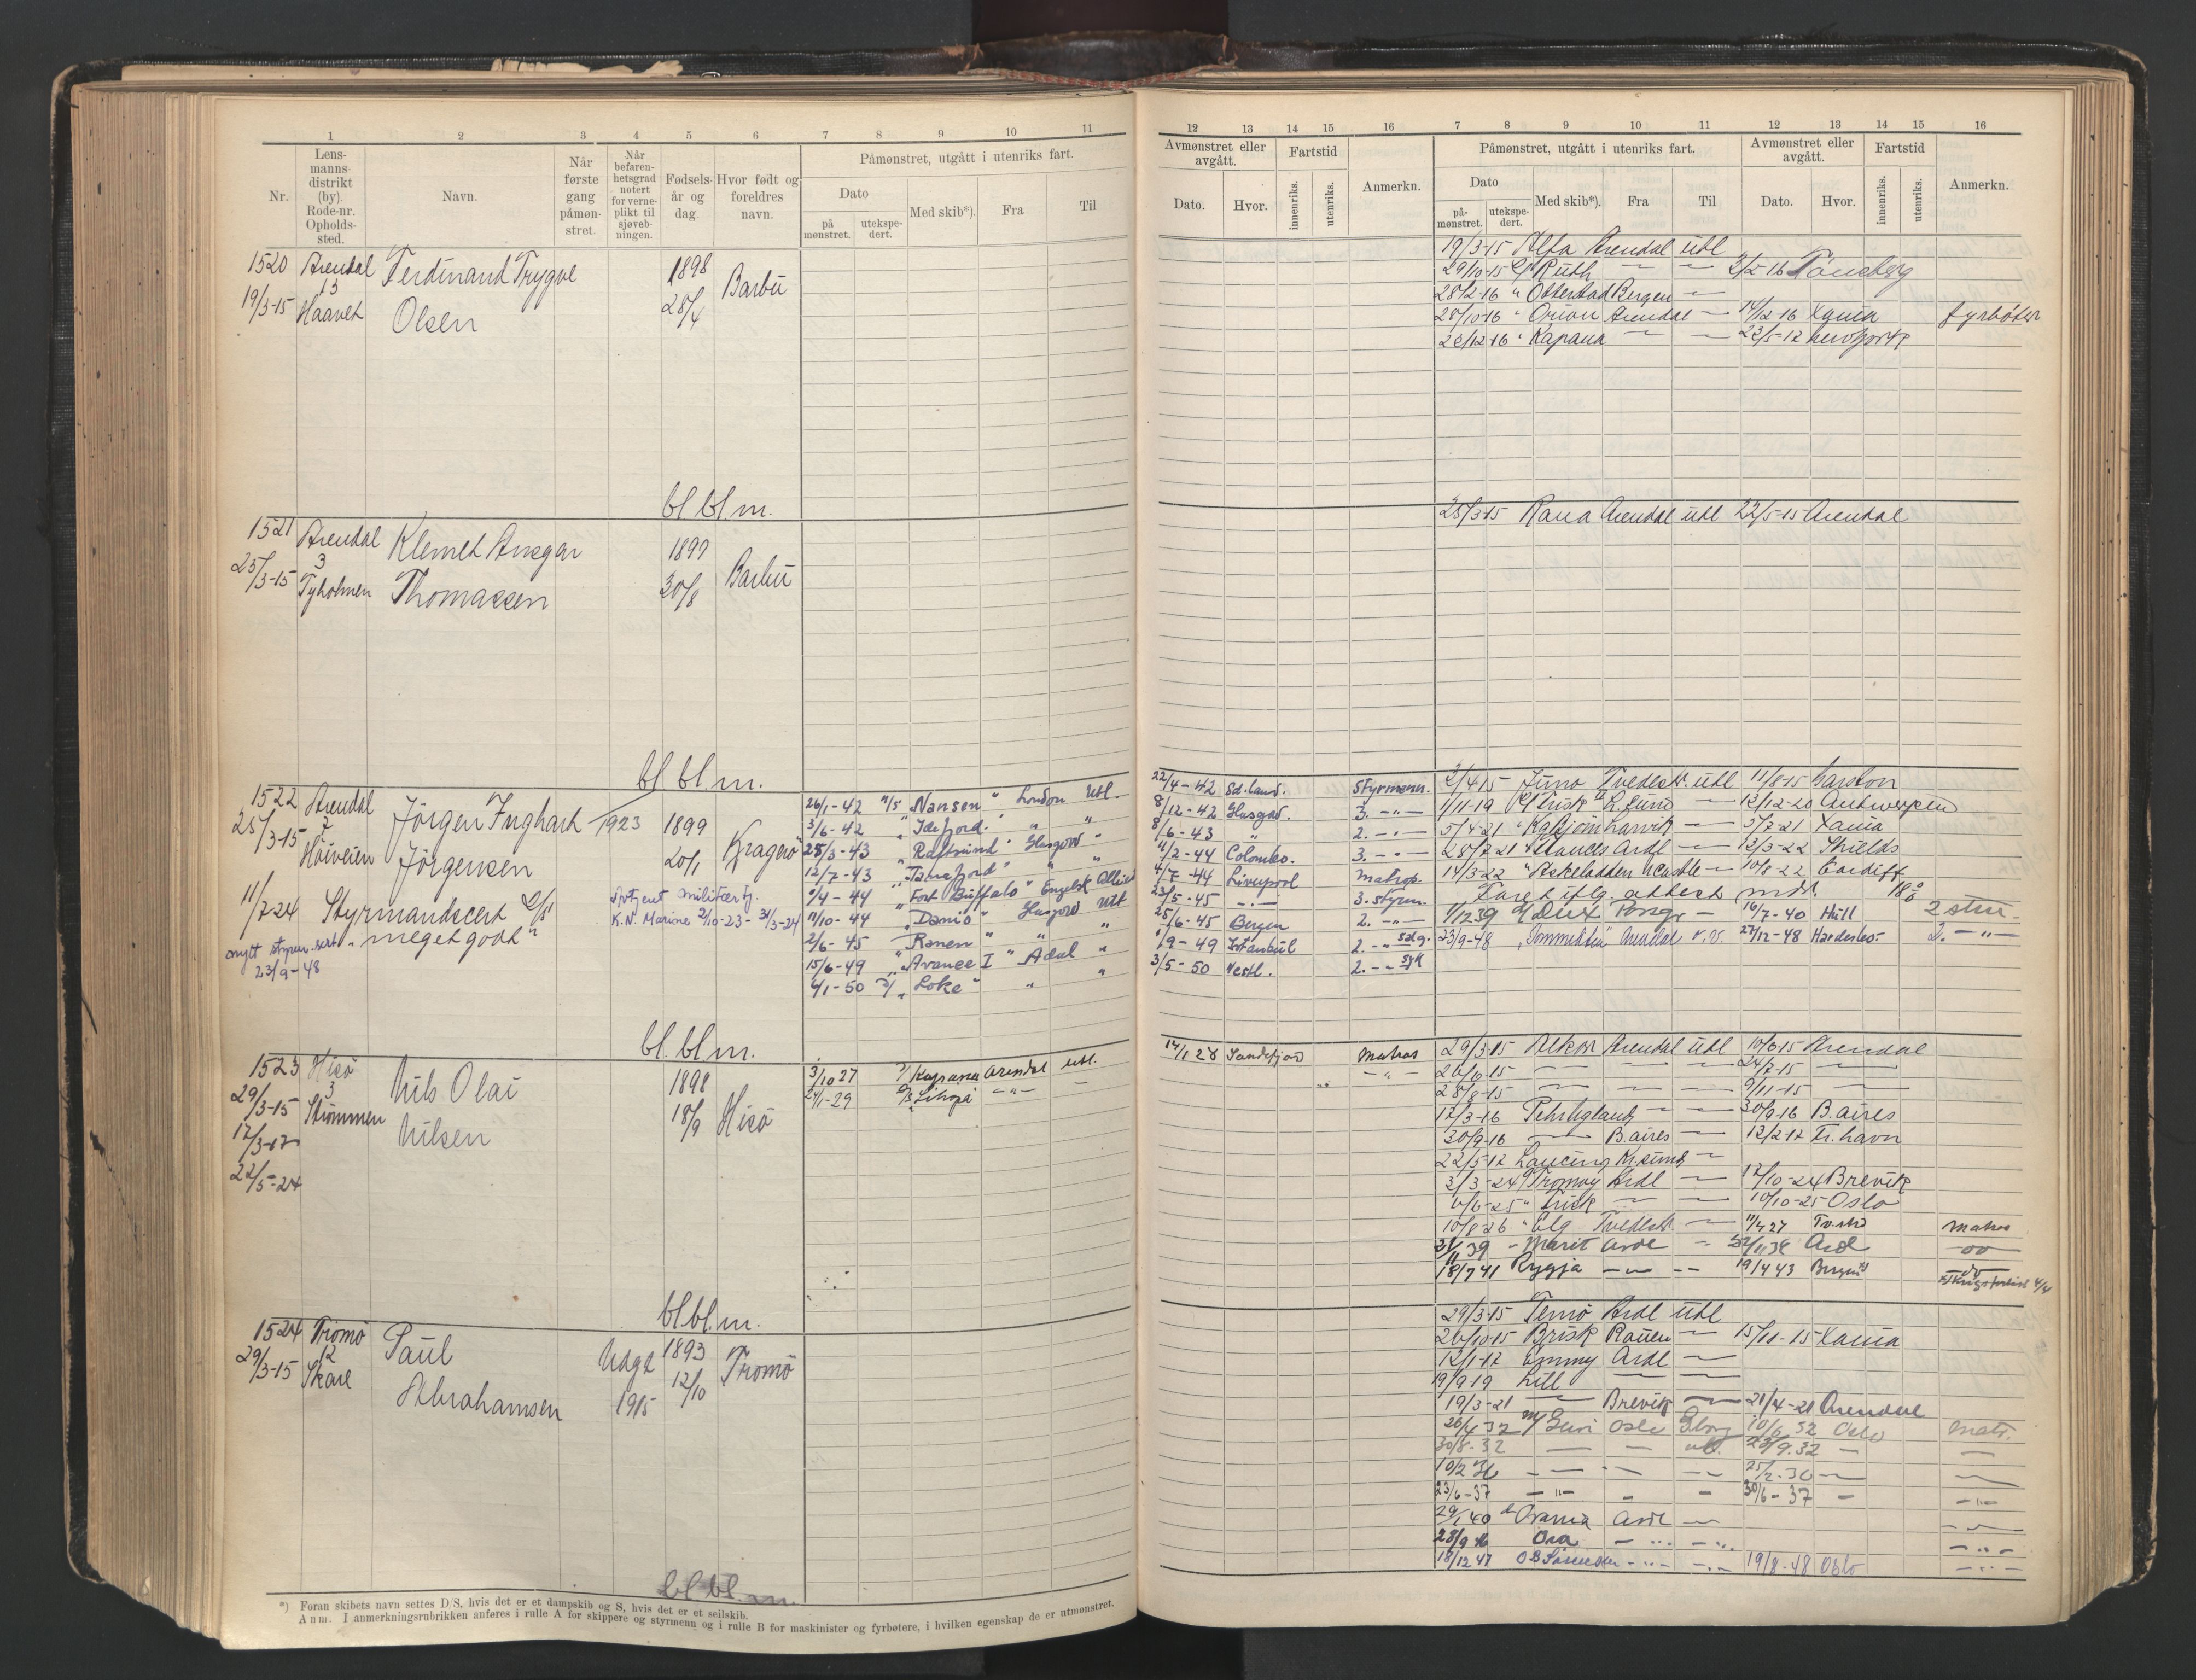 1 2 3 4 5 6 7 8 9 10 11
Nr.
Lens-
manns-
distrikt
(by).
Rode-nr.
Opholds-
sted.
Navn.
Når
første
gang
påmøn-
stret.
Når
befaren-
hetsgrad
notert
for verne-
plikt til
sjøveb-
ningen.
Fødsels-
år og
dag.
Hvor født og
foreldres
navn.
Påmønstret, utgått i utenriks fart.
Dato
på
mønstret.
utekspe-
dert.
Med skib*).
Fra
Til
12 13 14 15 16 7 8 9 10 11 12 13 14 15 16
Avmønstret eller
avgått.
Dato.
Hvor.
Fartstid
innenriks.
utenriks.
Anmerkn.
Påmønstret, utgått i utenriks fart.
Dato
på-
mønstret.
utekspe-
dert.
Med skib*).
Fra
Til
Avmønstret eller
avgått.
Dato.
Hvor.
Fartstid
innenriks.
utenriks.
Anmerkn.
1520 Arendal Ferdinand Trygve 1898 Barbu
19/3-15 13 Haavet Olsen 28/4
19/3-15 Alfa Arendal utl
29/10-15 Ruth — — 3/2-16 Tönsberg
28/2-16 " Otterstad Bergen —
28/10-16 " Orion Arendal — 14/12-16 Xania fyrböter
22/12-16 " Kapana — — 22/5-17
bl bl.m.
1521 Arendal Klemet Ansgar 1899 Barbu
25/3-15 3 Tyholmen Thomassen 30/8
25/3-15 Rana Arendal utl 22/5-15 Arendal
bl bl.m.
1522 Arendal Jörgen Inghart 1923 1899 Kragerö
25/3-15 Höiveien Jörgensen 20/1
11/7-24 Styrmandscert
"meget godt"
nytt styrm. sert.
23/9-48
Avtjent militærtj.
K.N. Marine 2/10-23 - 31/3-24
26/1-42 "Nansen" London Utl. 22/4-42 Sd.land. styrmann.
3/6-42 "Idefjord" " " 8/12-42 Glasgow. 3. -"-
25/3-43 "Raftsund" Glasgow " 8/6-43 " 2. -"-
12/7-43 "Tanafjord" " " 11/2-44 Colombo. 3. -"-
9/4-44 "Fort Buffalo" Engelsk Alliert 4/7-44 Liverpool matros.
11/10-44 "Danio" Glasgow Utl 23/5-45 -"- 3. styrm.
2/6-45 "Ranen" " " 25/6-45 Bergen 2. -"-
15/6-49 "Avance I" Adal " 1/9-49 Istanbul 2. -"- salg.
6/1-50 "Loke" " " 3/5-50 Vestl. 2. -"- syk
2/4-15 Juno Tvedestr. utl 11/8-15 Garston
1/11-19 Trisk — 12/12-20 Antwerpen
5/4-21 Larvik — 5/7-21 Xania
28/7-21 Ardl — 12/3-22 Shields
14/3-22 "Askeladden Ncastle — 10/8-22 Cardiff
Faret iflg. attest mdr.
1/12 39 Dux Porsgr — 16/7-40 Hull 2 stm.
23/9-48 "Sommersten" Arendal 27/12-48 2. -"-
bl. bl.m.
1523 Hisö Nils Olai 1898 Hisö
29/3-15 3 Strömmen Nilsen 18/9
17/3-17
22/5-24
3/10 27 Kaprana Arendal utl. 14/1 28 Sandefjord Matros
24/1-29 -"- — -"-
29/3-15 Alkor Arendal utl 10/6-15 Arendal
26/6-15 — — — 24/7-15 —
28/8-15 — — — 9/11-15 —
17/3-16 Pehr Ugland — — 30/9-16 B.aires
30/9-16 — B.aires — 12/2-17 Fr.havn
22/5-17 Lancing Kr.sund —
3/3-24 Tromöy Ardl — 17/10-24 Brevik
6/6-25 " Trisk — — 10/10-25 Oslo
10/8-26 " Elg Tvedestr. — 11/4 27 Tv.str matros
21/11 39 - Marit Ardl - Ardl
18/7 41 Rygja -"- -- 19/4 43 Bergen do
bl bl.m.
1524 Tromö Paul Udgt 1893 Tromö
29/3-15 12 Skare Abrahamsen 1915 12/10
29/3-15 Temo Ardl utl
26/10-15 Brisk Rauen — 15/11-15 Xania
12/1-17 Emmy Ardl —
19/9 19 Lill — —
19/3-21 — Brevik — 21/4-21 Arendal
26/4 32 M/ Guri Oslo Gbrg 10/6 32 Oslo matr.
30/8-32 — — utl. 23/9.32 — —
10/2 36 — — -- 25/2-36 — —
23/6-37 -"- - - 30/6-37 - -"-
29/1 40 Orania Ardl — -"-
28/9 46 Osa -"- -"- -"-
18/12 47 -"- -"- 19/8-48 Oslo -"-
bl bl. m.
*) Foran skibets navn settes D/S, hvis det er et dampskib og S, hvis det er et seilskib.
Anm. I anmerkningsrubrikken anføres i rulle A for skippere og styrmenn og i rulle B for maskinister og fyrbøtere, i hvilken egenskap de er utmønstret.